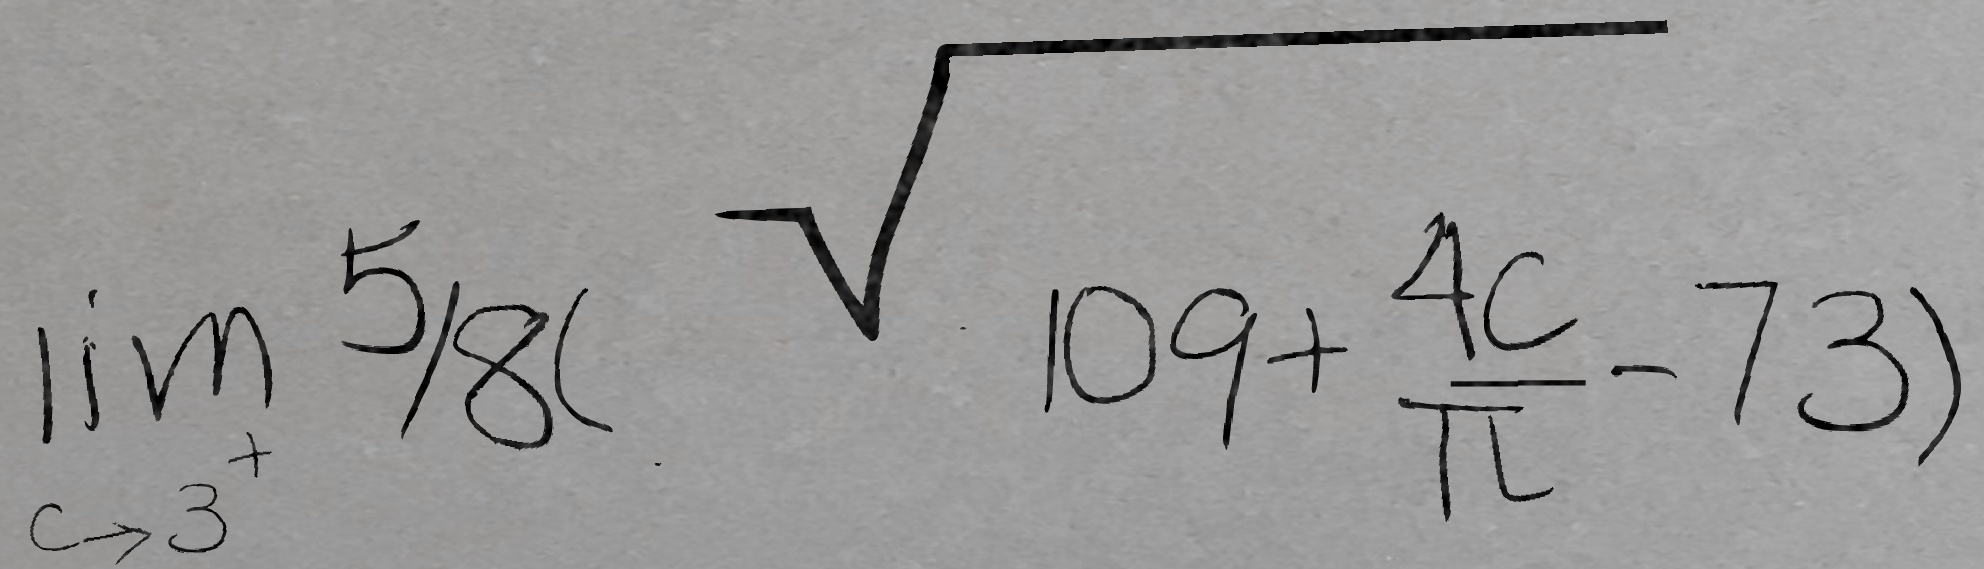 \lim_{c \to 3^+} 5/8(\sqrt{109 + \frac{4c}{\pi}} - 73)